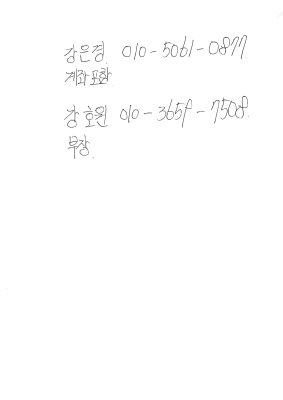 강은경. 010-5061-0877
계좌포함.
강호원 010-3658-7508.
부장.